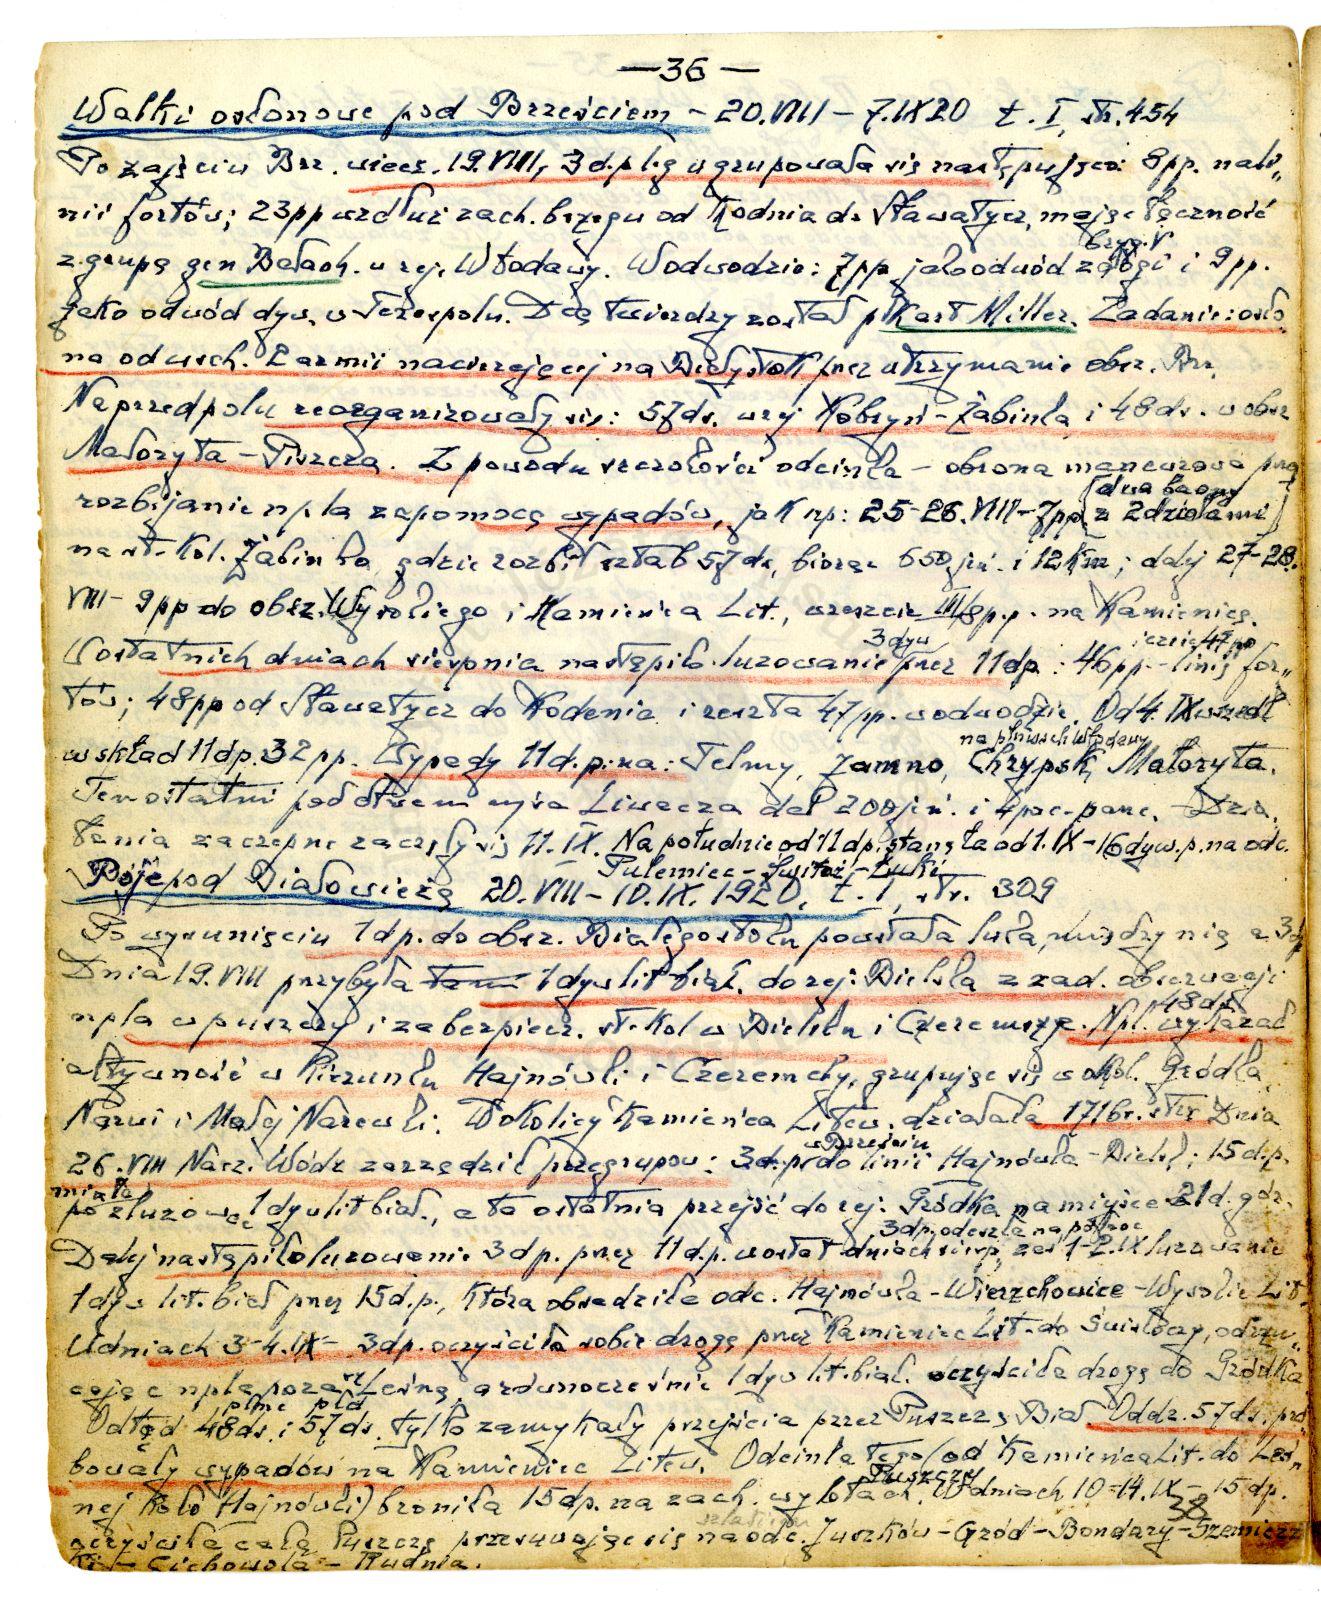 — 36 —
Walki osłonowe pod Brześciem – 20.VIII – 7.IX 20 t. I, str. 454
Po zajęciu Brz. wiecz. 19.VIII, 3 d.p.leg ugrupowała się następująco: 8pp. na li„
nii fortów; 23pp wzdłuż zach. brzegu od Kodnia do Sławatycz, mając łączność
z grupą gen Bałach. w rej. Włodawy. W odwodzie: 7pp jako odwód załogi i 9pp.
bryg. V
jako odwód dyw. w Terespolu. Dcą twierdzy został płk art Miller. Zadanie: osło
na od wsch. 2 armii nacierającej na Białystok przez utrzymanie obsz. Brz.
Na przedpolu reorganizowały się: 57 ds. w rej Kobryń – Żabinka i 48 ds. w obsz
Małoryta – Piszcza. Z powodu szerokości odcinka – obrona manewrowa przez
rozbijanie npla zapomocą wypadów, jak np: 25–26.VIII – 7pp (dwa baony z 2 działami)
na st. kol. Żabinka gdzie rozbił sztab 57 ds, biorąc 650 jeń. i 12 km; dalej 27–28.
VIII – 9pp do obsz. Wysokiego i Kamieńca Lit., wreszcie III/8 p.p. na Kamieniec.
W ostatnich dniach sierpnia nastąpiło luzowanie 3 dyw przez 11 dp: 46pp – i część 47 pp linię for„
tów; 48pp od Sławatycz do Kodenia i reszta 47pp. w odwodzie. Od 4.IX wszedł
w skład 11 dp. 32pp. Wypady 11 d.p. na: Telmy, Zamno, Chrypsk, Małoryta.
na płn wsch Włodawy
Ten ostatni pod dtwem mjra Liwacza dał 200 jeń. i 4 poc. panc. Dzia„
łania zaczepne zaczęły się 11.IX. Na południe od 11 dp. stanęła od 1.IX – 16 dyw. p. na odc.
Pulemiec – Świtaź – Łuki
Boje pod Białowieżą 20.VIII – 10.IX.1920, t. I, str. 309
Po wysunięciu 1 dp. do obsz. Białegostoku powstała luka między nią a 3 dp
Dnia 19.VIII przybyła 1 dyw lit biał. do rej: Bielska z zad. obserwacji
npla w puszczy i zabezpiecz. st. kol w Bielsku i Czeremsze. Npl. 48 ds wykazał
aktywność w kierunku Hajnówki i Czeremchy, grupując się w okol. Gródka,
Narwi i Małej Narewki. W okolicy Kamieńca Litew. działała 171 br. strz. Dnia
26.VIII Nacz. Wódz zarządził przegrupow: 3 d.p. w Brześciu do linii Hajnówka – Bielsk; 15 d.p.
miała
zluzować 1 dyw lit biał., a ta ostatnia przejść do rej: Gródka na miejsce 21 d. gór.
Dalej nastąpiło luzowanie 3 dp. przez 11 d.p. w ostat. dniach sierp, zaś 1–2.IX luzowanie
3 dp. odeszła na północ
1 dyw lit. biał przez 15 d.p., która obsadziła odc. Hajnówka – Wierzchowice – Wysokie Lit.
W dniach 3–4.IX – 3 dp. oczyściła sobie drogę przez Kamieniec Lit. do Świsłoczy, odrzu„
cając npla poza rz Leśną, a równocześnie 1 dyw lit. biał. oczyściła drogę do Gródka.
płnc płd
Odtąd 48 ds. i 57 ds. tylko zamykały przejścia przez Puszczę Biał. Oddz. 57 ds. pró
bowały wypadów na Kamieniec Litew. Odcinka tego (od Kamieńca Lit. do Leś„
nej koło Hajnówki) broniła 15 dp. na zach. wylotach Puszczy. W dniach 10–14.IX – 15 dp.
oczyściła całą Puszczę przesuwając się na odc. Juszków – Gród – Bondary – Szemierz
38
ki – Cichowola – Rudnia.